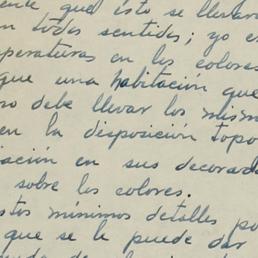 ente que ésto se llevara
n todos sentidos; yo es
peraturas en los colores
que una habitación que
ro debe llevar los mism
en la disposición topo
iación en sus decorado
sobre los colores.
stos mínimos detalles po
que se le puede dar